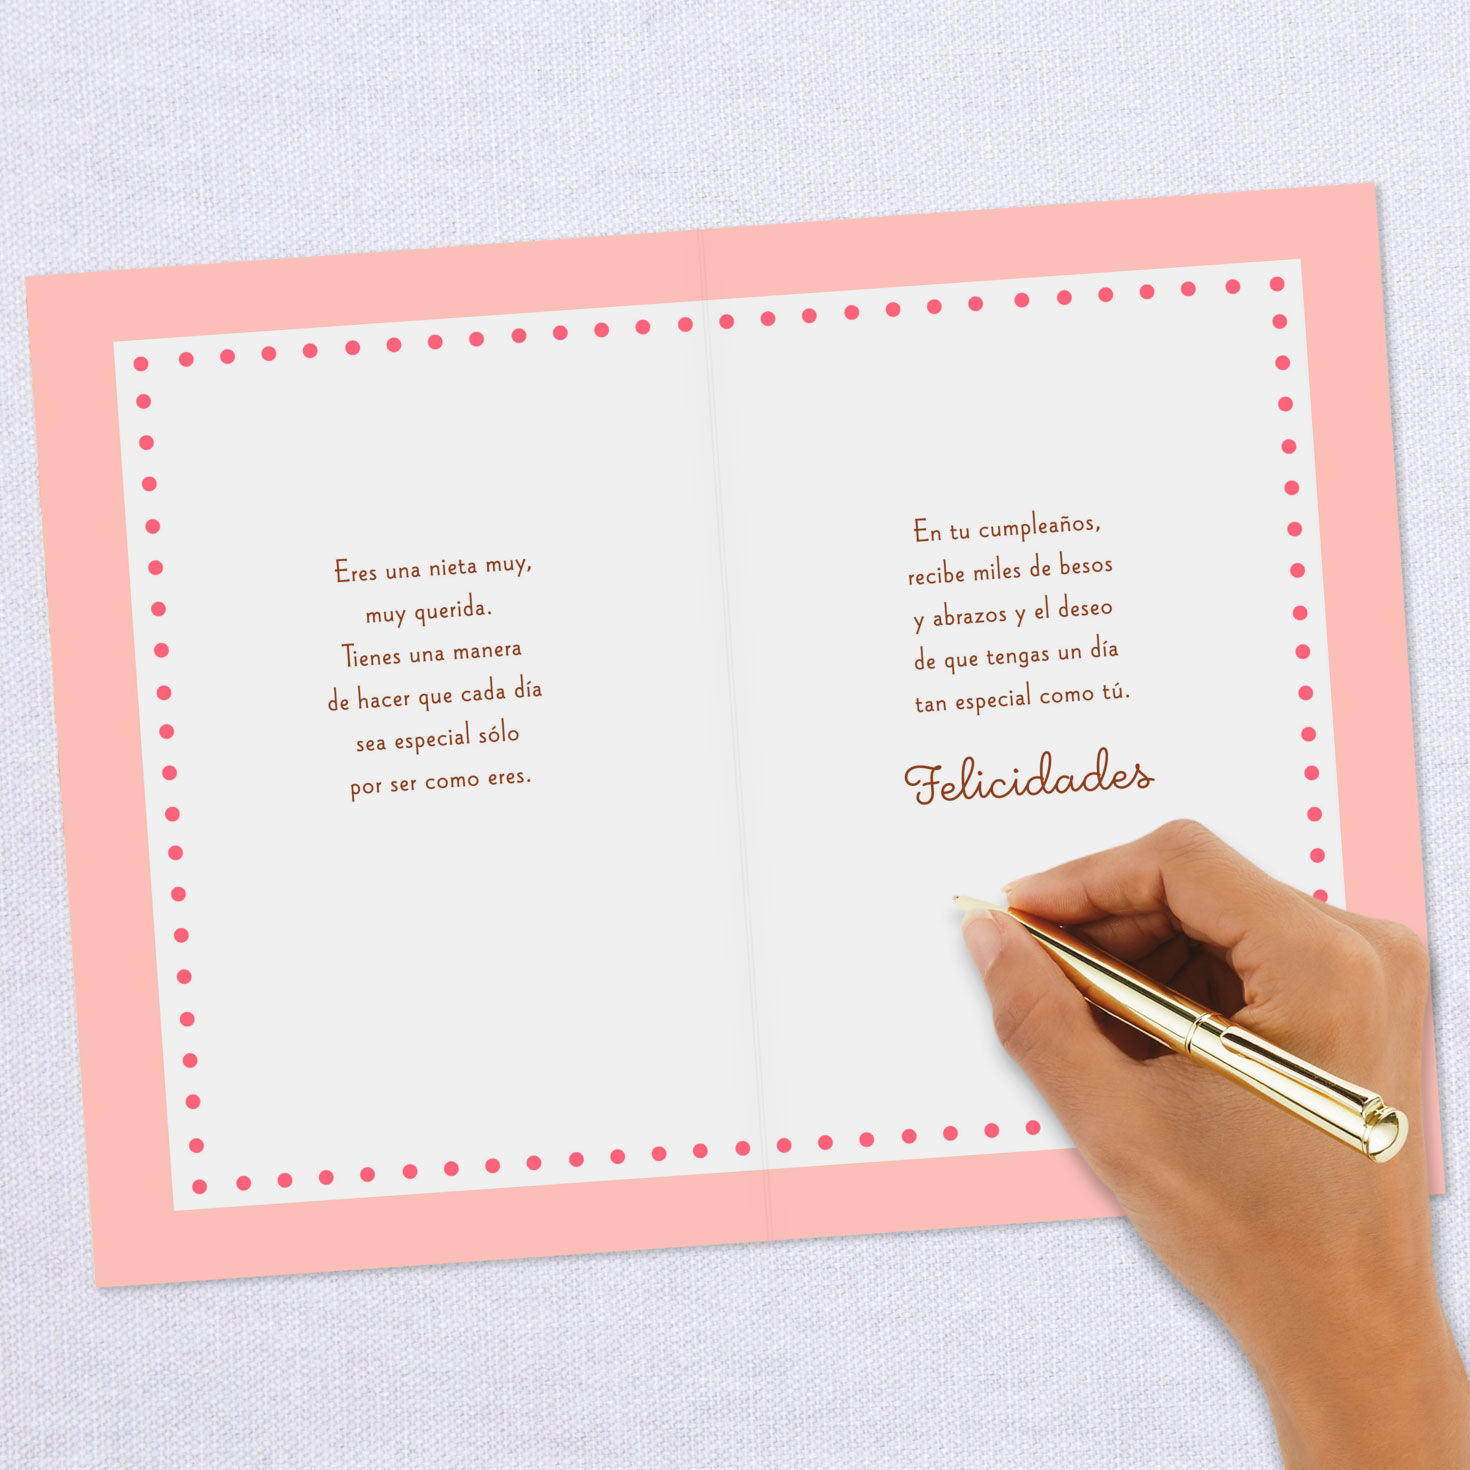 Eres una nieta muy,
muy querida.
Tienes una manera
de hacer que cada día
sea especial sólo
por ser como eres.
En tu cumpleaños,
recibe miles de besos
y abrazos y el deseo
de que tengas un día
tan especial como tú.
Felicidades